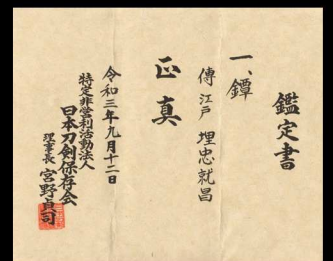 鑑定書
一、鐔
傳 江戸 埋忠就昌
正真
令和三年九月十二日
特定非営利活動法人
日本刀剣保存会
理事長 宮野貞司